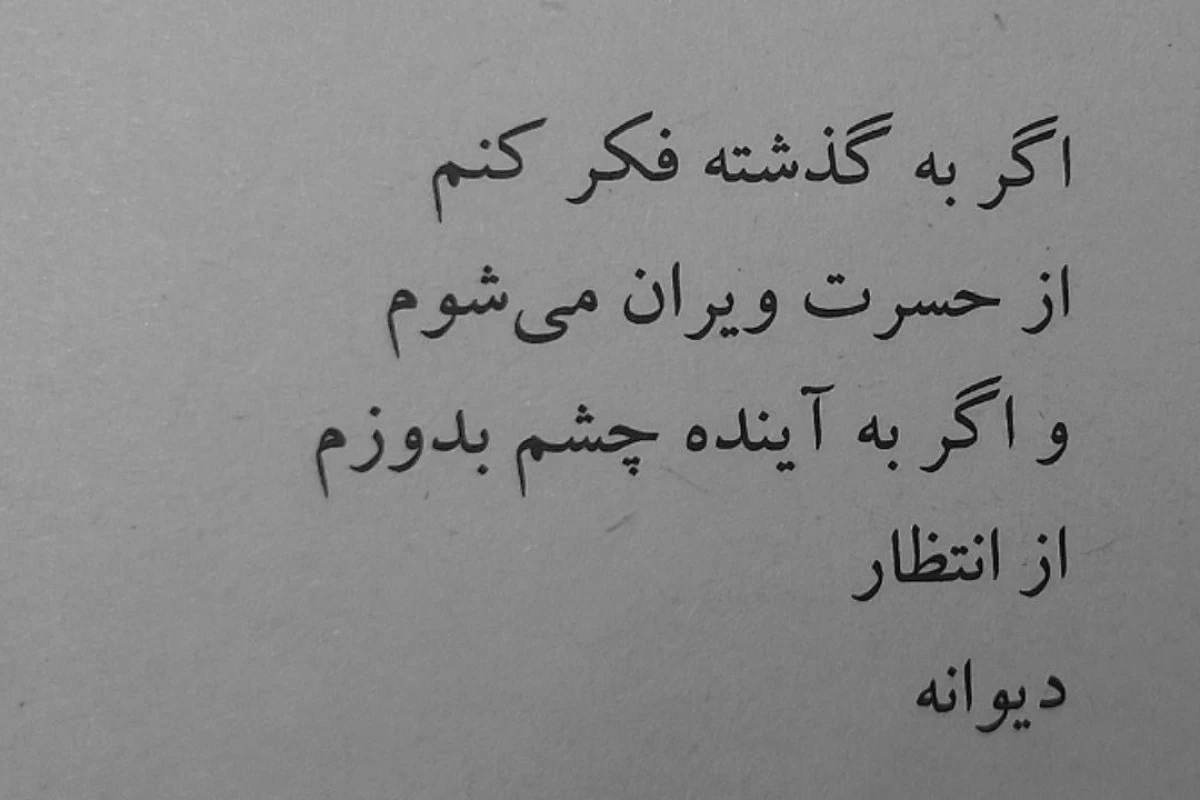 اگر به گذشته فکر کنم
از حسرت ویران می‌شوم
و اگر به آینده چشم بدوزم
از انتظار
دیوانه